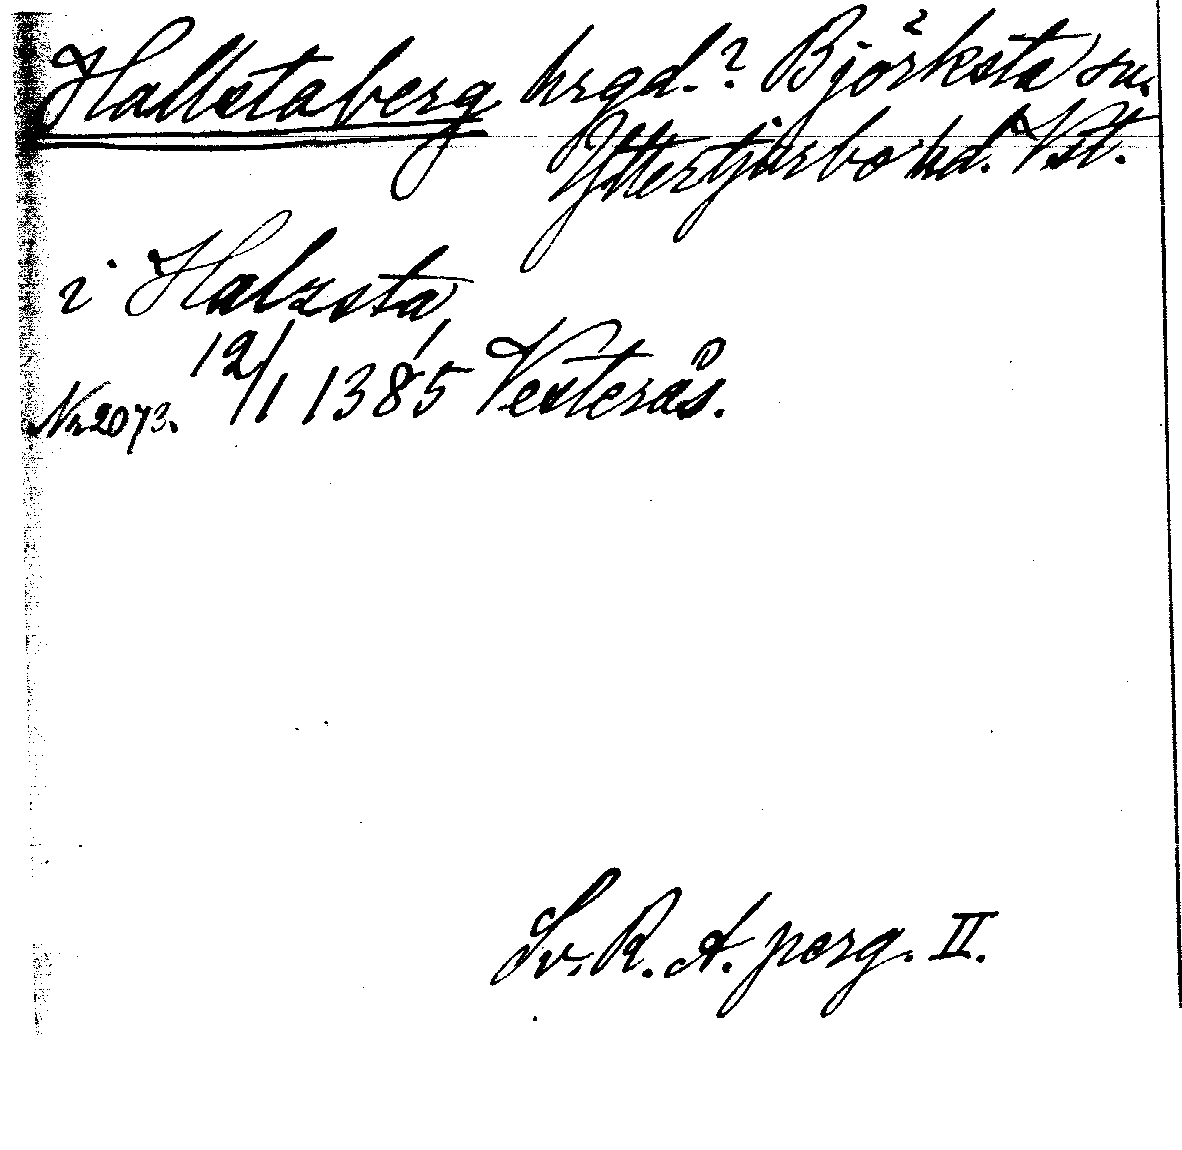 Hallstaberg hrgd.? Björksta sn.
Yttertjurbo hd. Vst.
i Halzsta
12/1 1385 Vesterås.
Nr 2073.
Sv. R. A. perg. II.